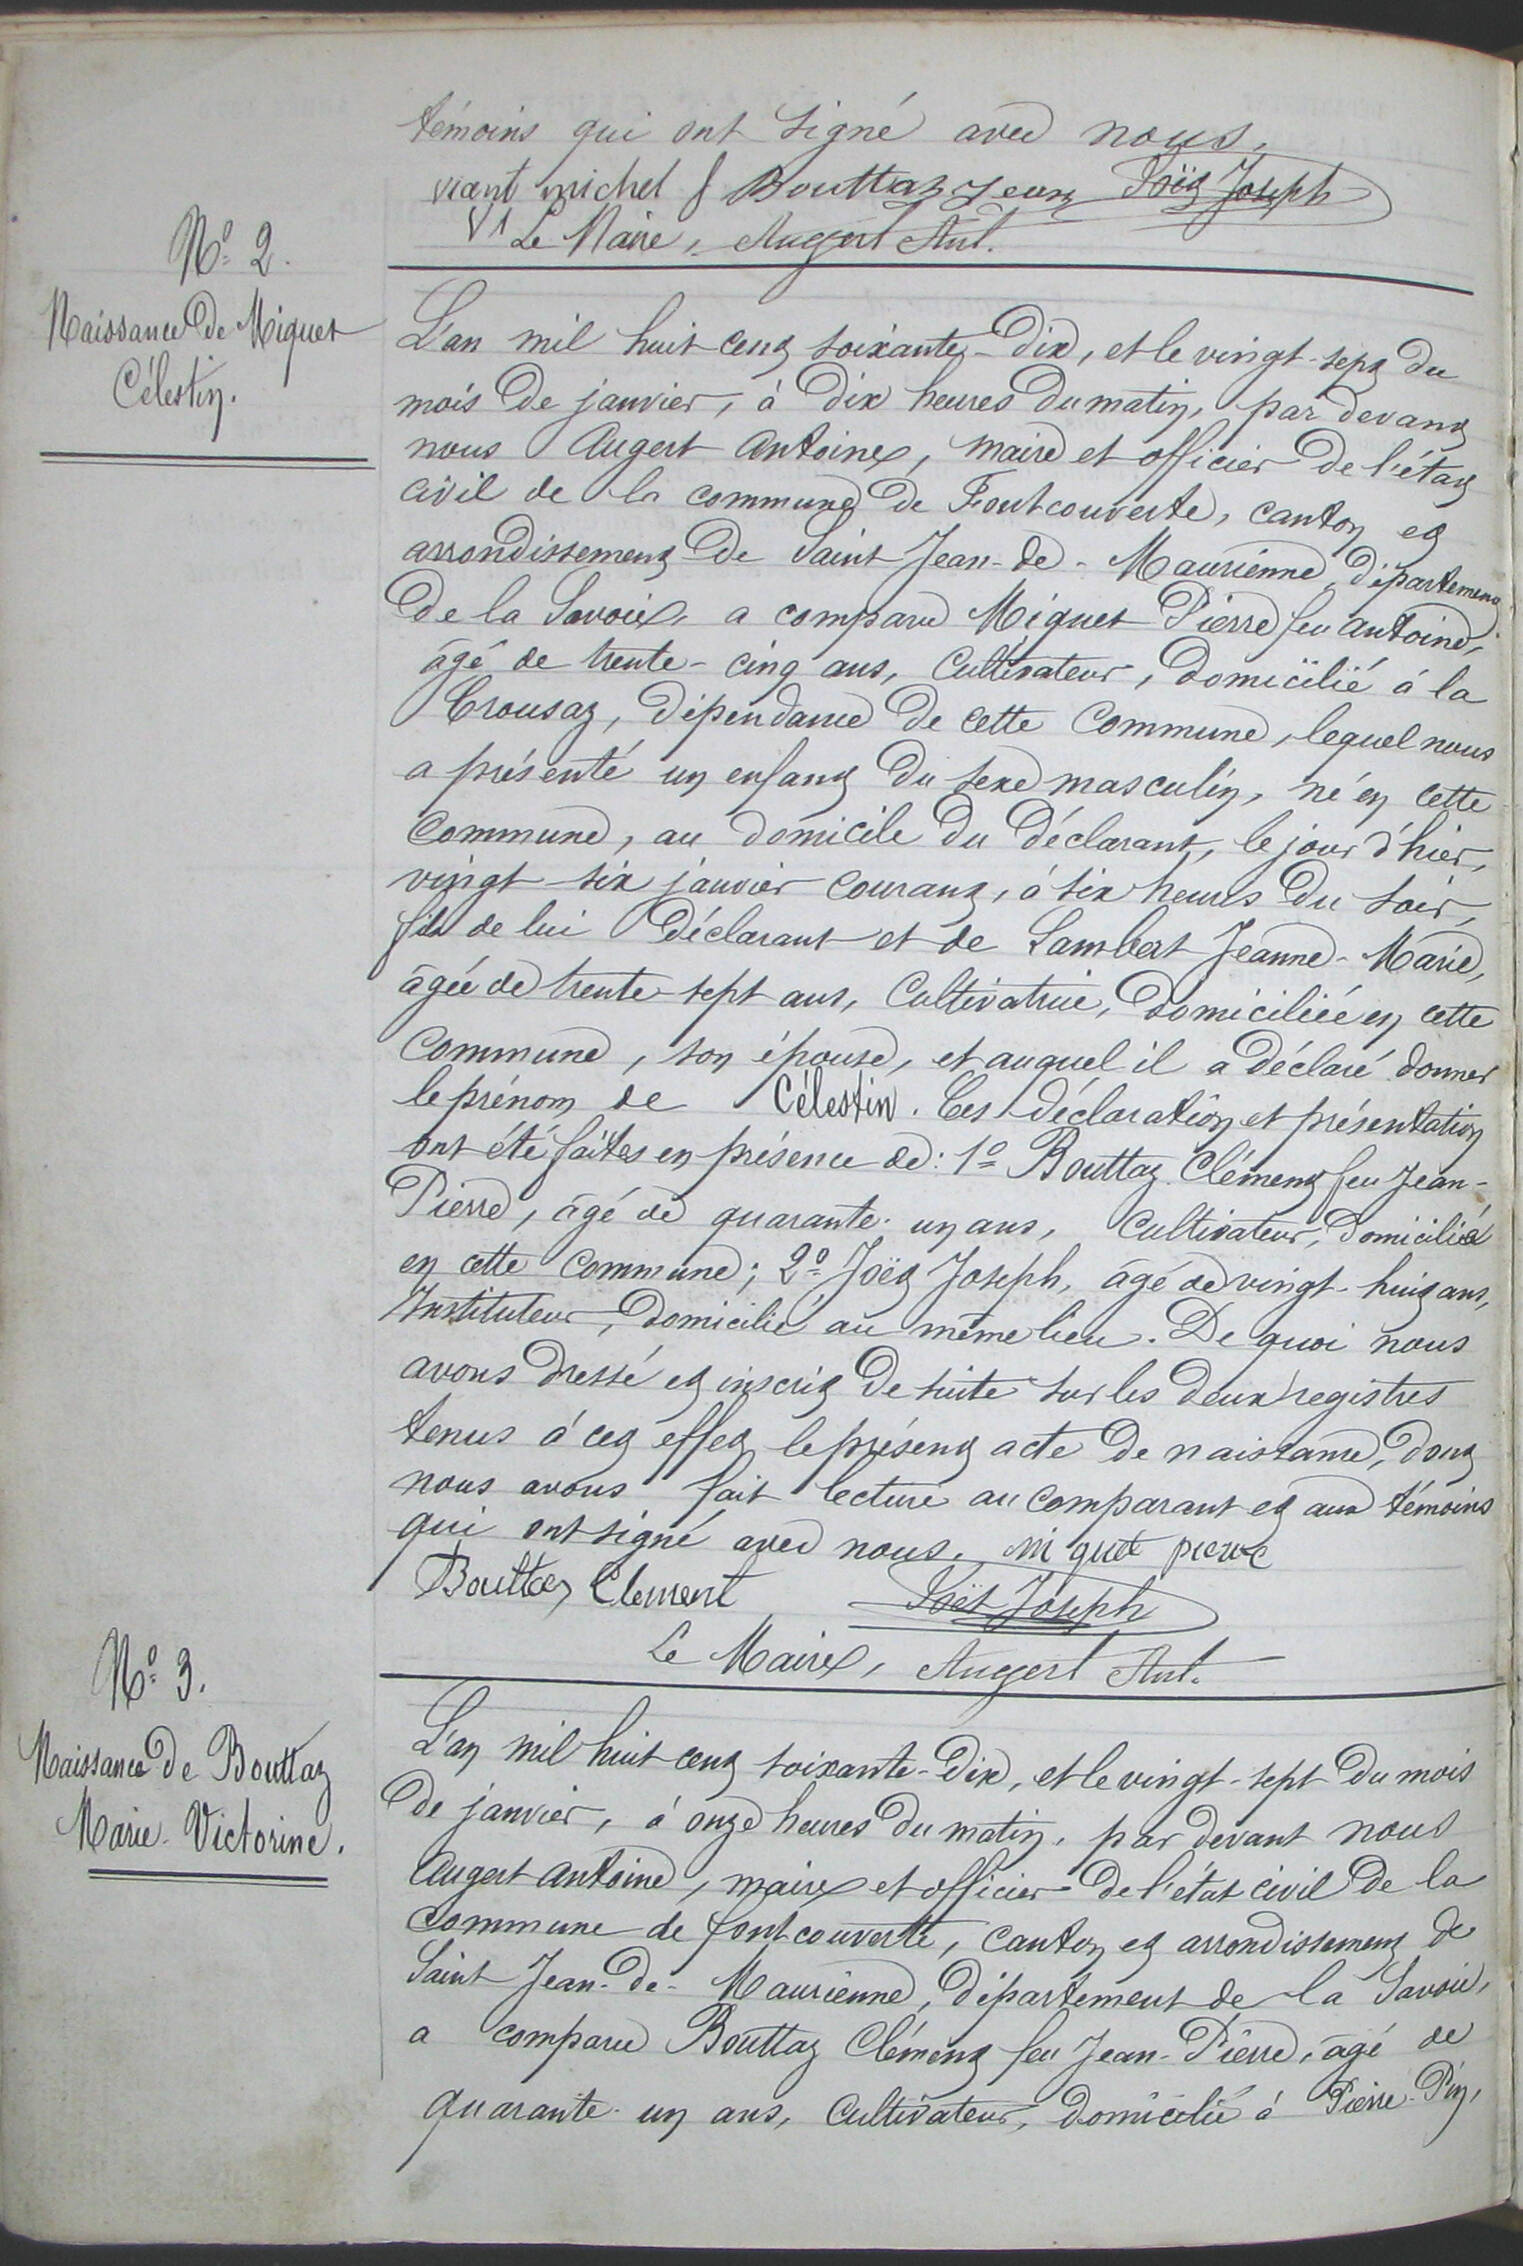 témoins qui ont signé avec nous.
vicent michel Bouttaz Jean Joët Joseph
Le Maire, Augert Ant.
N.º 2.
Naissance de Miguet
Célestin.
L'an mil huit cent soixante-dix, et le vingt-sept du
mois de janvier, à dix heures du matin, par devant
nous Augert Antoine, maire et officier de l'état
civil de la commune de Fontcouverte, canton et
arrondissement de Saint Jean-de-Maurienne, département
de la Savoie, a comparu Miguet Pierre feu Antoine,
âgé de trente-cinq ans, Cultivateur, domicilié à la
Crousaz, dépendance de cette Commune, lequel nous
a présenté un enfant du sexe masculin, né en cette
Commune, au domicile du déclarant, le jour d'hier,
vingt-six janvier courant, à six heures du soir,
fils de lui déclarant et de Lambert Jeanne-Marie,
âgée de trente-sept ans, Cultivatrice, domiciliée en cette
Commune, son épouse, et auquel il a déclaré donner
le prénom de Célestin. Ces déclaration et présentation
ont été faites en présence de: 1º Bouttaz Clément feu Jean-
Pierre, âgé de quarante-un ans, Cultivateur, domicilié
en cette Commune; 2º Joët Joseph, âgé de vingt-huit ans,
Instituteur, domicilié au même lieu. De quoi nous
avons dressé et inscrit de suite sur les deux registres
tenus à cet effet le présent acte de naissance, dont
nous avons fait lecture au comparant et aux témoins
qui ont signé avec nous. miguet pierre
Bouttaz Clement Joët Joseph
Le Maire, Augert Ant.
N.º 3.
Naissance de Bouttaz
Marie-Victorine.
L'an mil huit cent soixante-dix, et le vingt-sept du mois
de janvier, à onze heures du matin, par devant nous
Augert Antoine, maire et officier de l'état civil de la
Commune de fontcouverte, canton et arrondissement de
Saint Jean-de-Maurienne, département de la Savoie,
a comparu Bouttaz Clément feu Jean-Pierre, âgé de
quarante-un ans, Cultivateur, domicilié à Pierre-Pin,